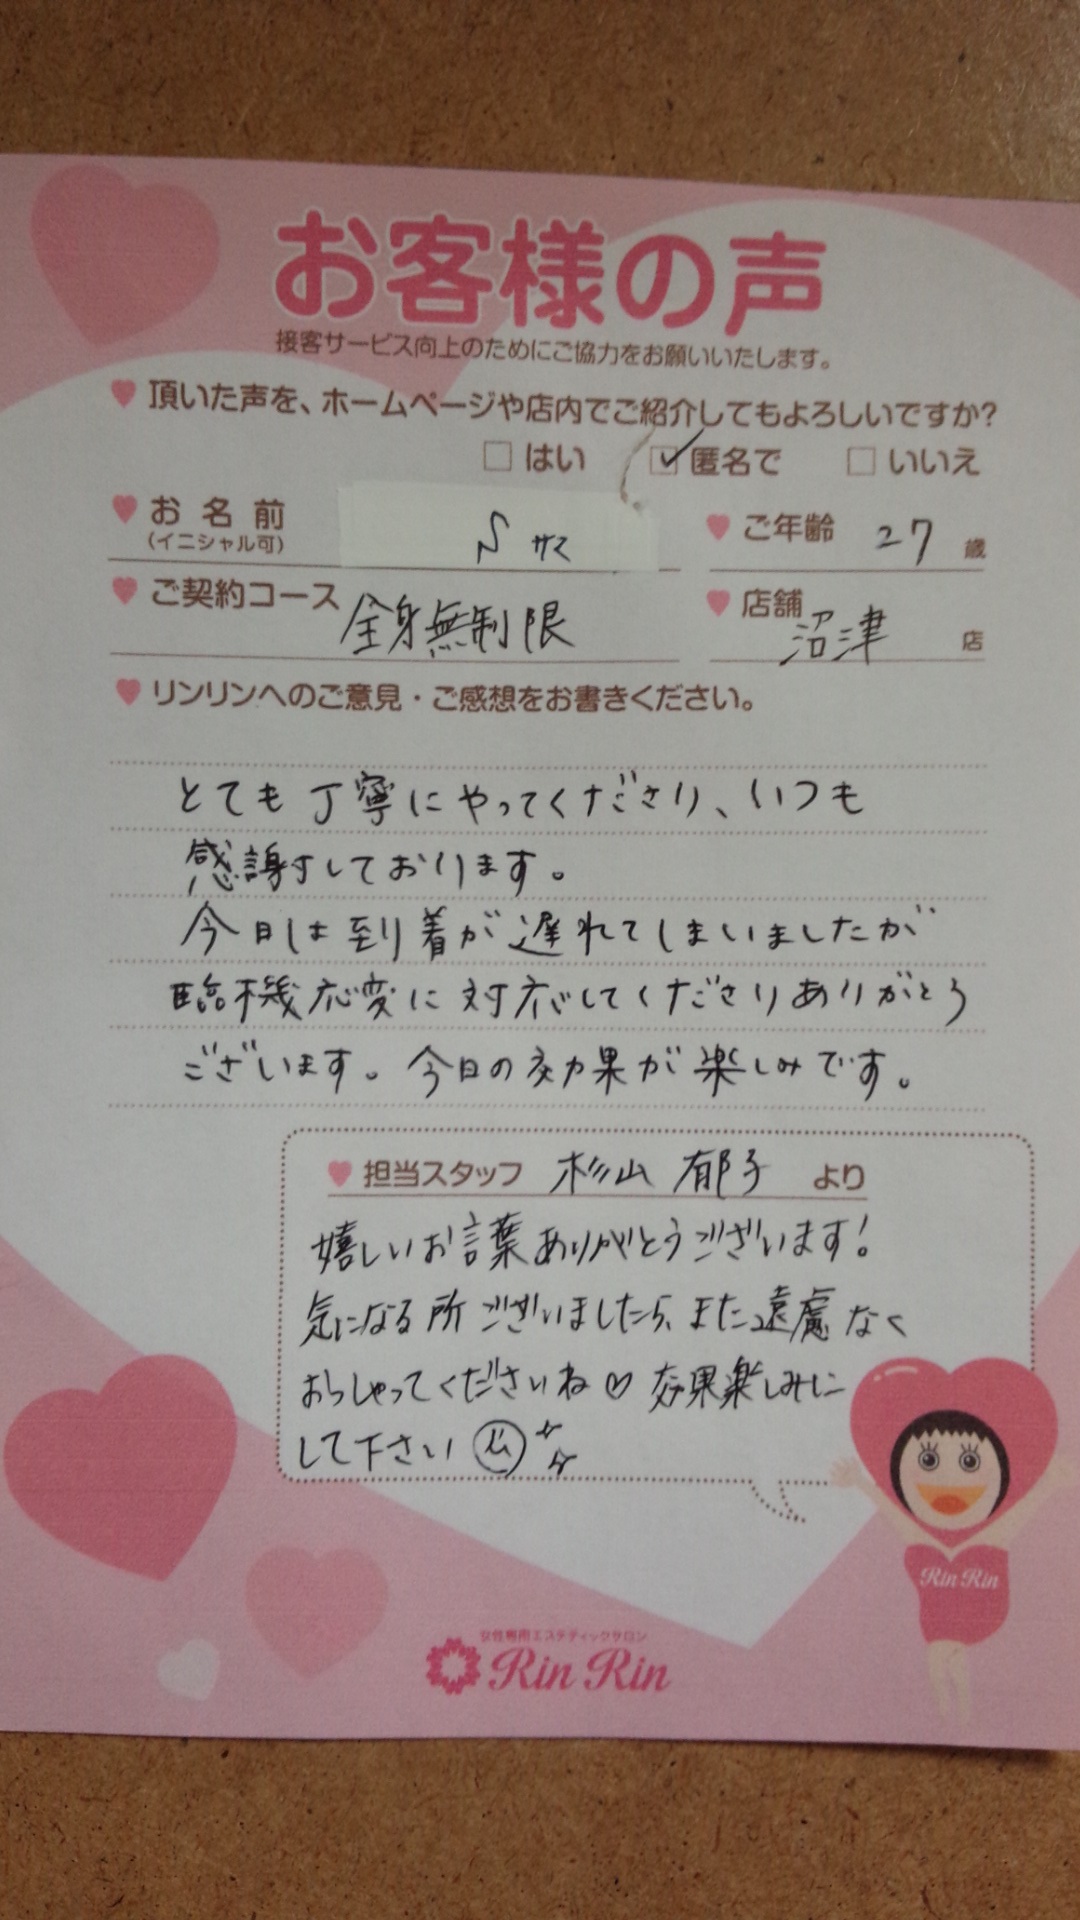 お客様の声
接客サービス向上のためにご協力をお願いいたします。
頂いた声を、ホームページや店内でご紹介してもよろしいですか?
はい 匿名で いいえ
お名前 N サマ ご年齢 27 歳
(イニシャル可)
ご契約コース 全身無制限 店舗 沼津 店
リンリンへのご意見・ご感想をお書きください。
とても丁寧にやってくださり、いつも
感謝しております。
今日は到着が遅れてしまいましたが
臨機応変に対応してくださりありがとう
ございます。今日の効果が楽しみです。
担当スタッフ 杉山 郁子 より
嬉しいお言葉ありがとうございます!
気になる所ございましたら、また遠慮なく
おっしゃってくださいね♡ 効果楽しみに
して下さい
Rin Rin
女性専用エステティックサロン
Rin Rin